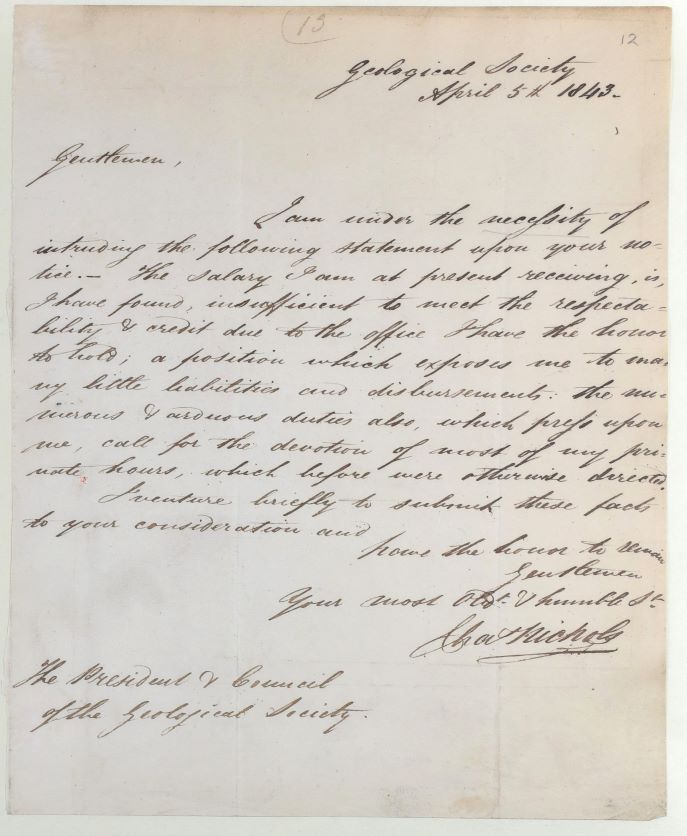 13
12
Geological Society
April 5th 1843-
Gentlemen,
I am under the necessity of
intruding the following statement upon your no-
tice.- The salary I am at present receiving, is,
I have found, insufficient to meet the respecta-
bility & credit due to the office I have the honor
to hold; a position which exposes me to ma-
ny little liabilities and disbursements: the nu-
merous & arduous duties also, which press upon
me, call for the devotion of most of my pri-
vate hours, which before were otherwise directed.
I venture briefly to submit these facts
to your consideration and
have the honor to remain
Gentlemen
Your most Obdt. & humble St.
Chas Nichols
The President & Council
of the Geological Society.